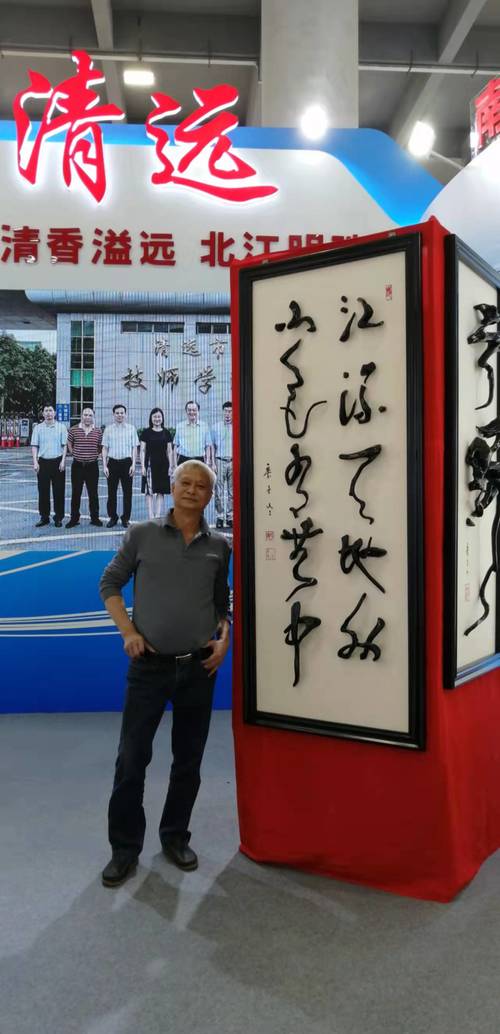 清远
清香溢远 北江明珠
清远市
技师学
江流天地外
山色有无中